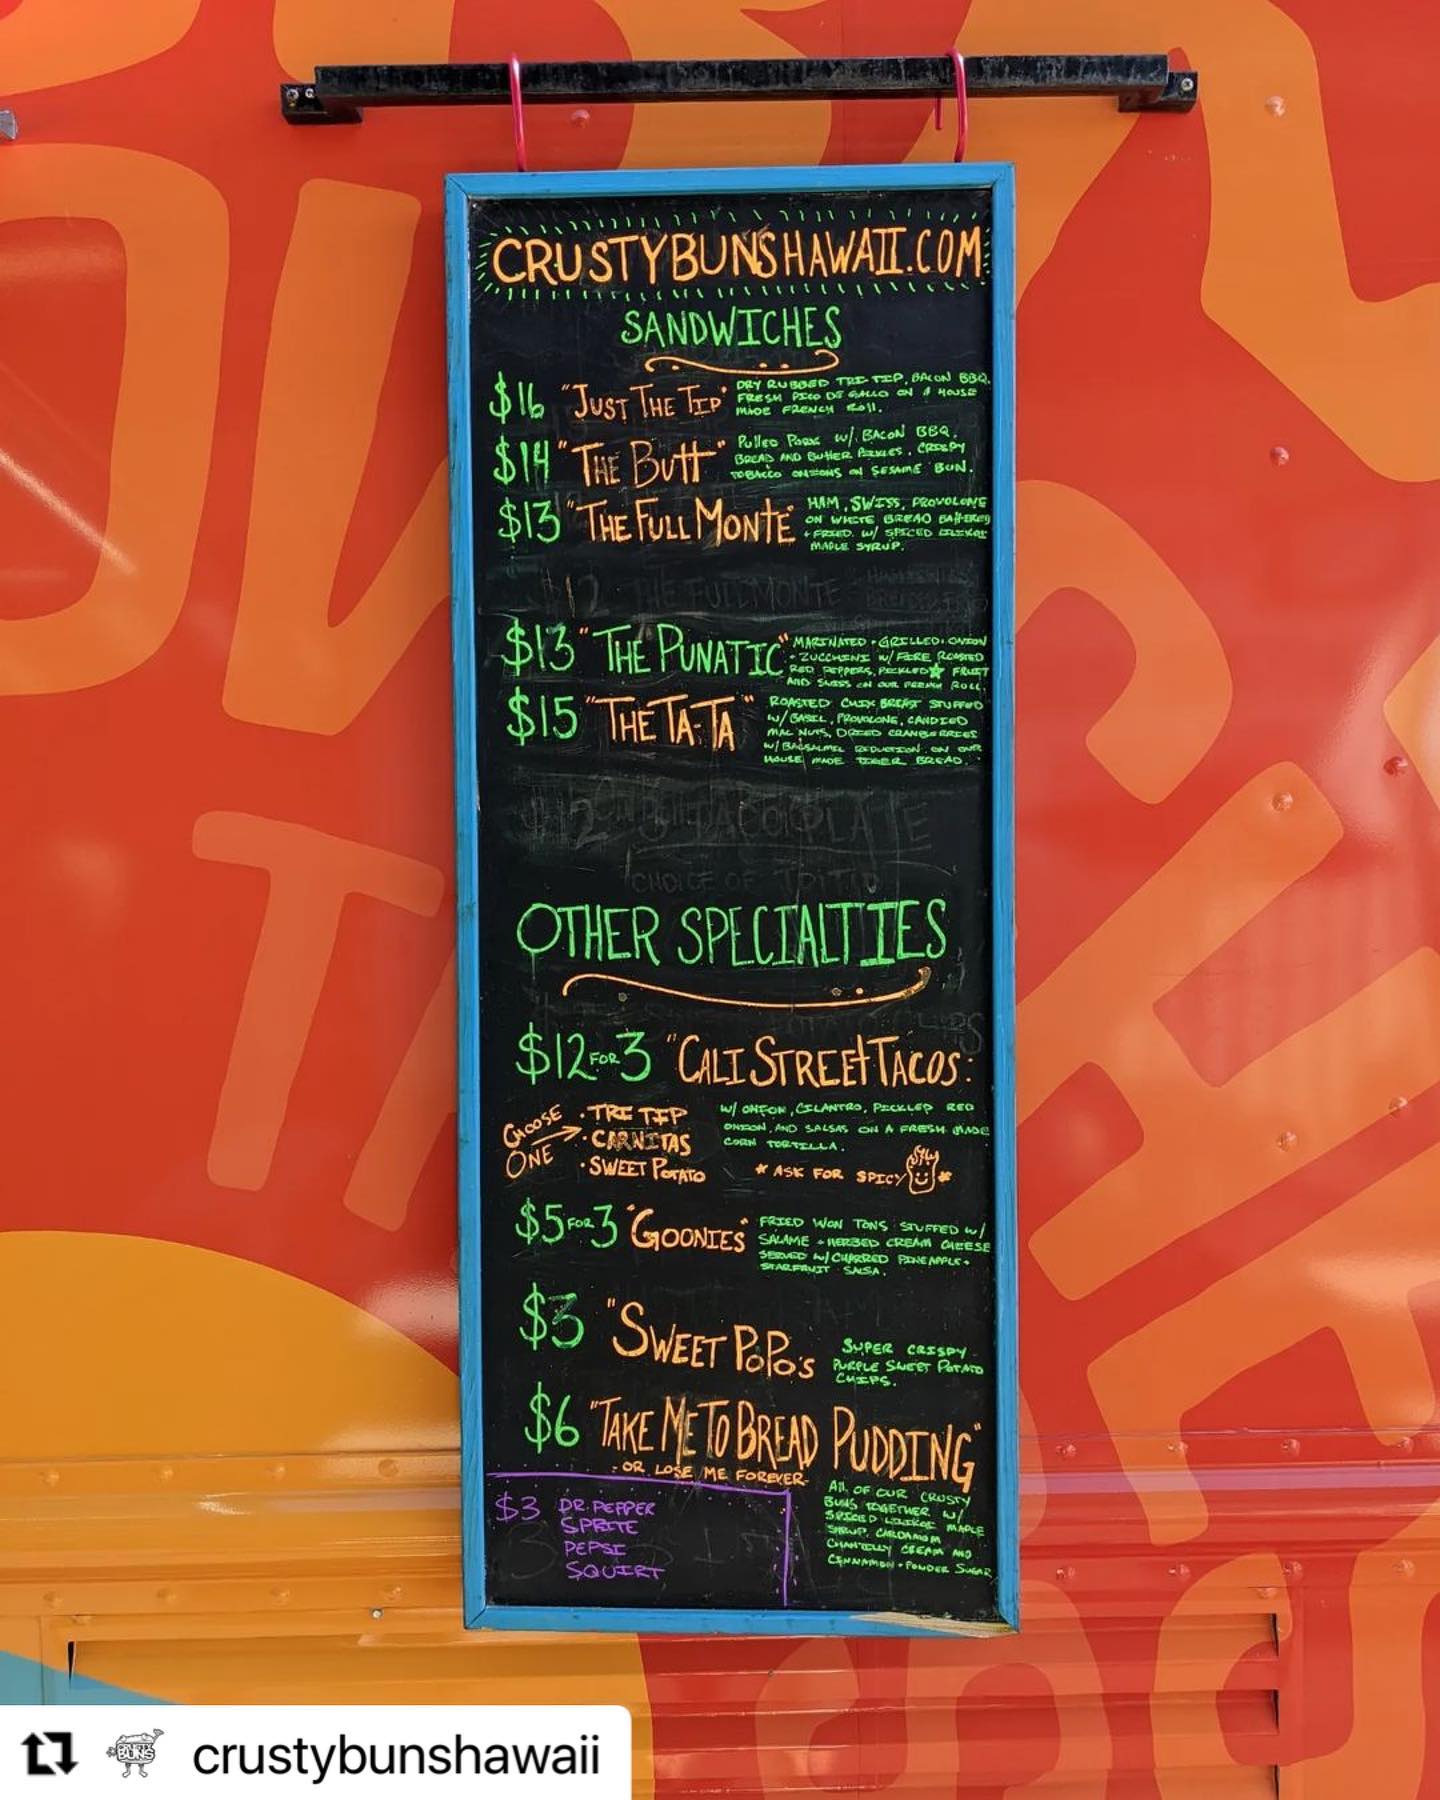 CRUSTYBUNSHAWAII.COM
SANDWICHES
$16 "JUST THE TIP"
DRY RUBBED TRI-TIP, BACON BBQ,
FRESH PICO DE GALLO ON A HOUSE
MADE FRENCH ROLL.
$14 "THE BUTT"
PULLED PORK W/ BACON BBQ,
BREAD AND BUTTER PICKLES, CRISPY
TOBACCO ONIONS ON SESAME BUN.
$13 "THE FULL MONTE"
HAM, SWISS, PROVOLONE
ON WHITE BREAD BATTERED
+ FRIED W/ SPICED LILIKOI
MAPLE SYRUP.
$12 THE FULL MONTE
$13 "THE PUNATIC"
MARINATED + GRILLED ONION
+ ZUCCHINI W/ FIRE ROASTED
RED PEPPERS, PICKLED ★ FRUIT
AND SWISS ON OUR FRENCH ROLL.
$15 "THE TA-TA"
ROASTED CHIX BREAST STUFFED
W/ BASIL, PROVOLONE, CANDIED
MAC NUTS, DRIED CRANBERRIES
W/ BALSALMIC REDUCTION ON OUR
HOUSE MADE TIGER BREAD.
$12 PLATE
CHOICE OF
OTHER SPECIALTIES
$12 FOR 3 "CALI STREET TACOS:
CHOOSE ONE
• TRI TIP
• CARNITAS
• SWEET POTATO
W/ ONION, CILANTRO, PICKLED RED
ONION, AND SALSAS ON A FRESH MADE
CORN TORTILLA.
* ASK FOR SPICY *
$5 FOR 3 "GOONIES"
FRIED WON TONS STUFFED W/
SALAME + HERBED CREAM CHEESE
SERVED W/ CHARRED PINEAPPLE +
STARFRUIT SALSA.
$3 "SWEET POPO'S
SUPER CRISPY
PURPLE SWEET POTATO
CHIPS.
$6 "TAKE ME TO BREAD PUDDING"
- OR LOSE ME FOREVER -
ALL OF OUR CRUSTY
BUNS TOGETHER W/
SPICED LILIKOI MAPLE
SYRUP, CARDAMOM
CHANTILLY CREAM AND
CINNAMON + POWDER SUGAR
$3 DR. PEPPER
SPRITE
PEPSI
SQUIRT
crustybunshawaii